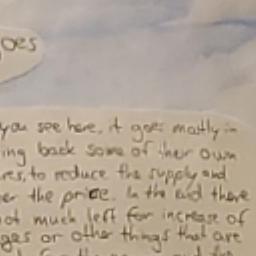 oes
you see here, it goes mostly in
ing back some of their own
res, to reduce the supply and
er the price. In the end there
ot much left for increase of
ges or other things that are